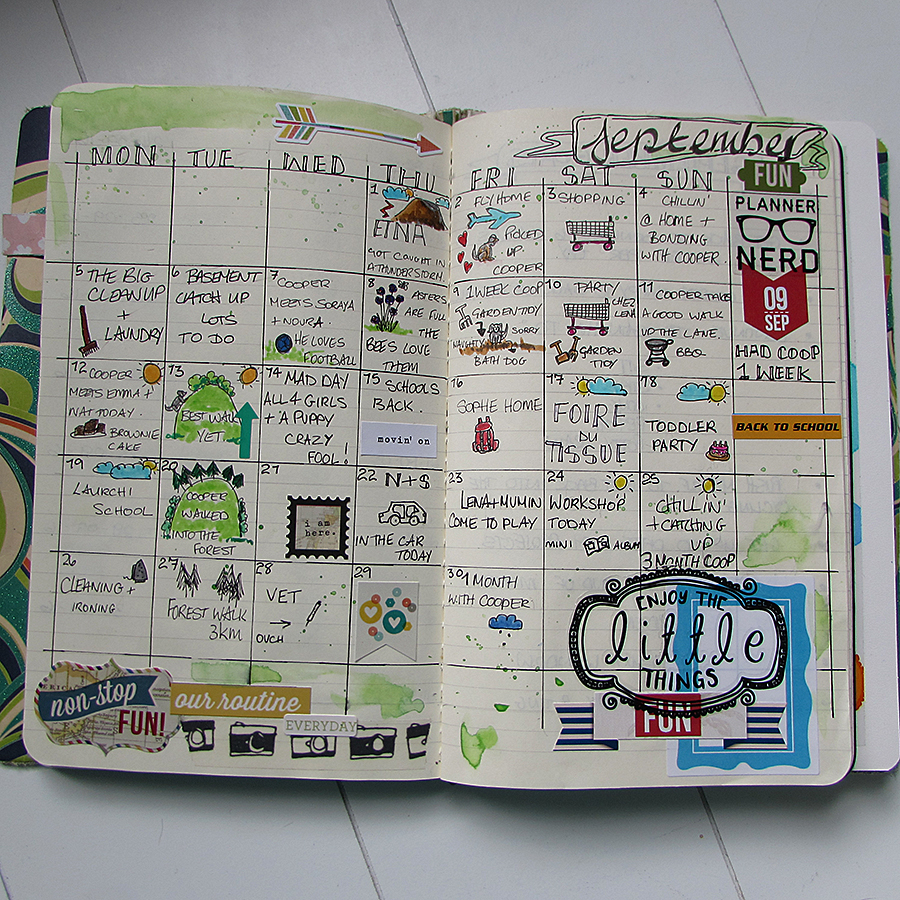 September
MON TUE WED THU FRI SAT SUN
FUN
PLANNER
NERD
09
SEP
1
ETNA
GOT CAUGHT IN
A THUNDERSTORM.
2 FLY HOME
PICKED
UP
COOPER
3 SHOPPING
4
CHILLIN'
@ HOME +
BONDING
WITH COOPER.
5 THE BIG
CLEANUP
+
LAUNDRY
6 BASEMENT
CATCH UP
LOTS
TO DO
7 COOPER
MEETS SORAYA
+ NOURA.
HE LOVES
FOOTBALL
8 ASTERS
ARE FULL
THE
BEES LOVE
THEM
9 1 WEEK COOP
GARDEN TOY
NAUGHTY
SORRY
BATH DOG
10 PARTY
CHEZ
LENA
GARDEN
TIDY
11 COOPER TAKES
A GOOD WALK
UP THE LANE.
BBQ
HAD COOP
1 WEEK
12 COOPER
MEETS EMMA +
NAT TODAY.
BROWNIE
CAKE
13
BEST WALK
YET
14 MAD DAY
ALL 4 GIRLS
+ A PUPPY
CRAZY
FOOL!
15 SCHOOLS
BACK.
movin' on
16
SOPHE HOME
17
FOIRE
DU
TISSUE
18
TODDLER
PARTY
BACK TO SCHOOL
19
LAURCHI
SCHOOL
20
COOPER
WALKED
INTO THE
FOREST
21
i am
here.
22 N+S
IN THE CAR
TODAY
23
LENA+MUMIN
COME TO PLAY
24
WORKSHOP
TODAY
MINI ALBUM
25
CHILLIN'
+ CATCHING
UP
3 MONTH COOP
26
CLEANING +
IRONING
27
FOREST WALK
3KM
28
VET
OUCH
29
30 1 MONTH
WITH COOPER
ENJOY THE
little
THINGS
FUN
non-stop
FUN!
our routine
EVERYDAY